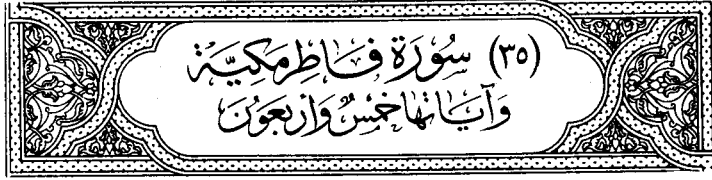 (٣٥) سُورَة فَاطِرْ مَكِيَّة
وَآيَاتُهَا خَمْسٌ وَأَرْبَعُونَ